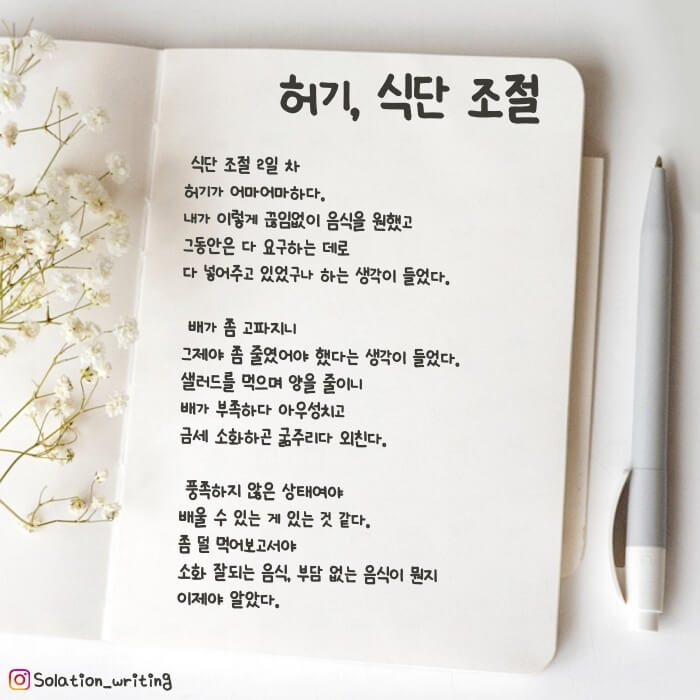 허기, 식단 조절
식단 조절 2일 차
허기가 어마어마하다.
내가 이렇게 끊임없이 음식을 원했고
그동안은 다 요구하는 데로
다 넣어주고 있었구나 하는 생각이 들었다.
배가 좀 고파지니
그제야 좀 줄였어야 했다는 생각이 들었다.
샐러드를 먹으며 양을 줄이니
배가 부족하다 아우성치고
금세 소화하곤 굶주리다 외친다.
풍족하지 않은 상태여야
배울 수 있는 게 있는 것 같다.
좀 덜 먹어보고서야
소화 잘되는 음식, 부담 없는 음식이 뭔지
이제야 알았다.
Solation_writing